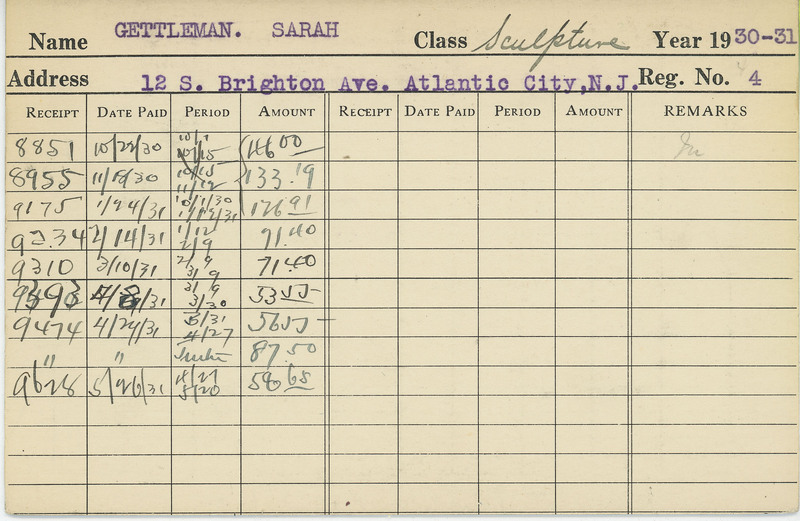 Name GETTLEMAN. SARAH Class Sculpture Year 1930-31
Address 12 S. Brighton Ave. Atlantic City, N.J. Reg. No. 4
RECEIPT DATE PAID PERIOD AMOUNT RECEIPT DATE PAID PERIOD AMOUNT REMARKS
8851 10/22/30 10/1 10/15 146 00 In
8955 11/18/30 10/15 11/12 133.19
9175 1/24/31 10/1/30 1/12/31 126 91
9234 2/14/31 1/12 2/9 71.40
9310 3/10/31 2/9 3/9 71.40
9393 4/8/31 3/9 3/30 53 55
9474 4/24/31 3/31 4/27 56 55
" " 87.50
9628 5/26/31 4/27 5/20 58 65